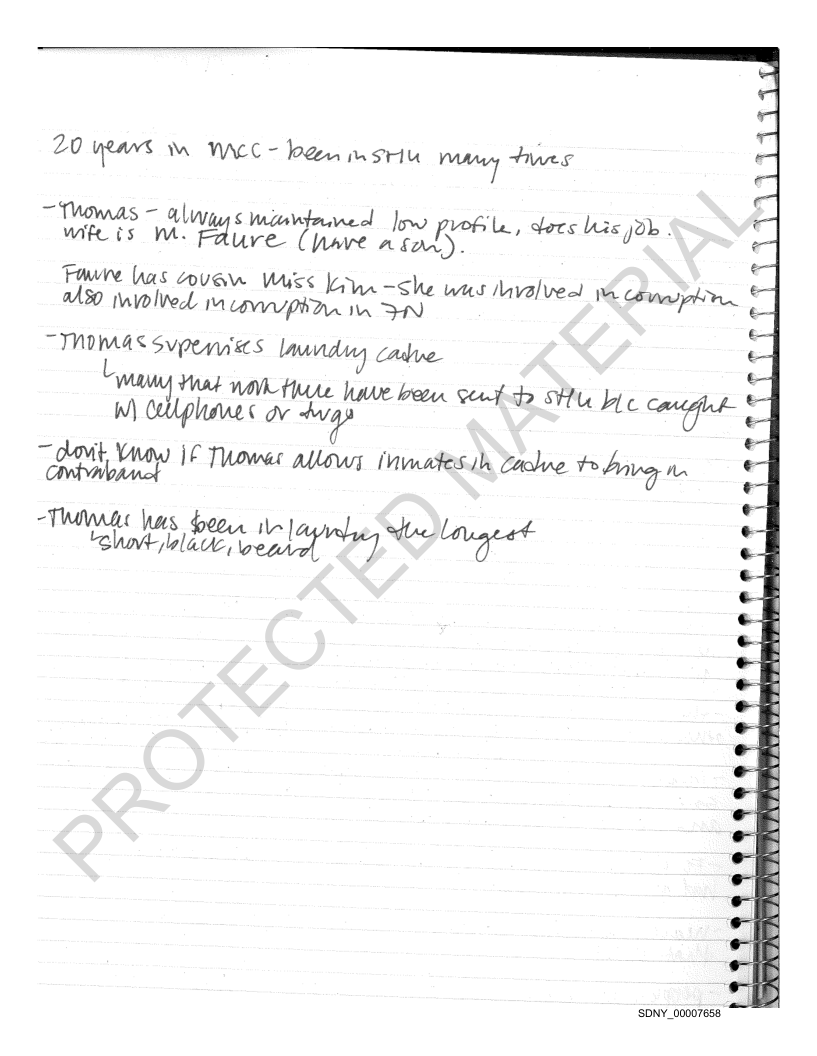 20 years in MCC - been in SHU many times
- Thomas - always maintained low profile, does his job.
wife is M. Faure (have a son).
Faure has cousin Miss Kim - she was involved in corruption
also involved in corruption in 7N
- Thomas supervises laundry cadre
many that work there have been sent to SHU b/c caught
w/ cellphones or drugs
- don't know if Thomas allows inmates in cadre to bring in
contraband
- Thomas has been in laundry the longest
short, black, beard
PROTECTED MATERIAL
SDNY_00007658